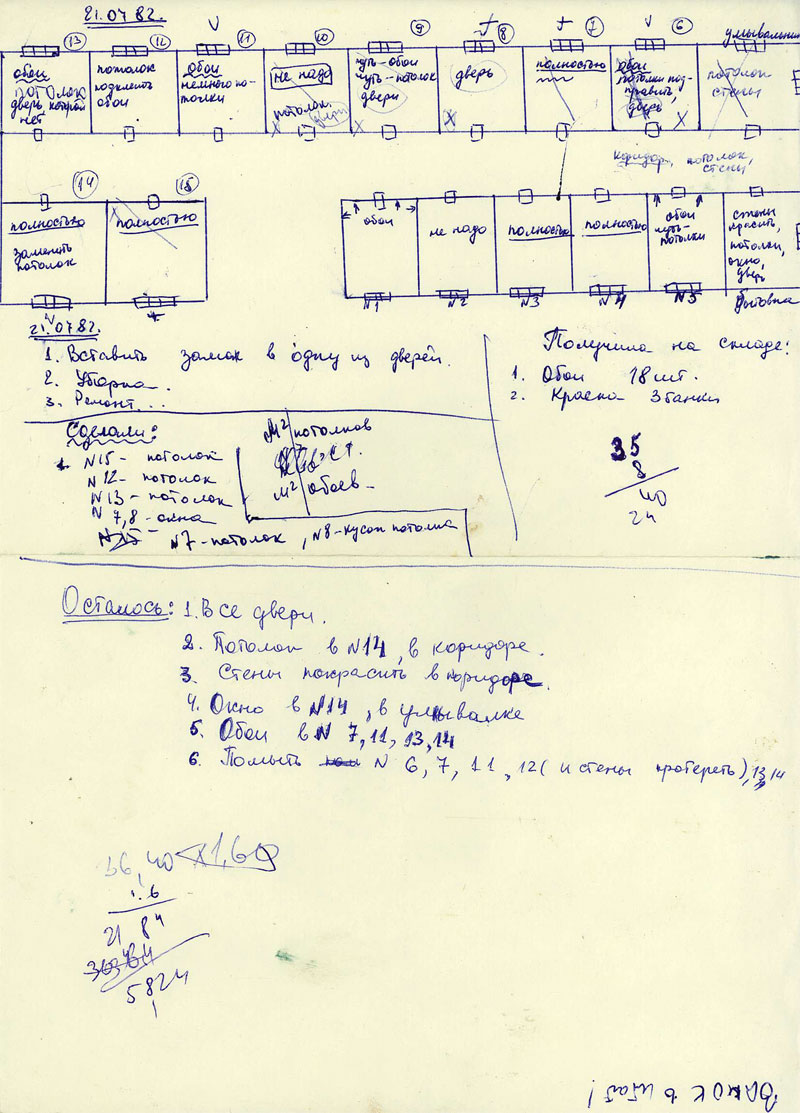 21.07.82.
13
12
11
10
9
8
7
6
умывальник
обои
потолок
дверь которой
нет
потолок
подклеить
обои
обои
немного по-
толки
не надо
потолок
двери
чуть-обои
чуть-потолок
двери
дверь
полностью
обои
потолки под-
править,
дверь
потолок
стены
коридор, потолок,
стены
14
15
полностью
заменить
потолок
полностью
обои
не надо
полностью
полностью
обои
чуть-
потолки
стены
красить,
потолки,
окно,
дверь
N1
N2
N3
N4
N5
бытовка
21.07.82.
1. Вставить замок в одну из дверей.
2. Уборка.
3. Ремонт...
Получила на складе:
1. Обои 18 шт.
2. Краска 3 банки
Сделали:
1. N15 - потолок
N12 - потолок
N13 - потолок
N 7,8 - окна
N7 - потолок, N8 - кусок потолка
м² потолков
м² обоев -
35
8
40
24
Осталось: 1. Все двери.
2. Потолок в N14, в коридоре.
3. Стены покрасить в коридоре.
4. Окно в N14, в умывалке
5. Обои в N 7, 11, 13, 14
6. Помыть N 6, 7, 11, 12 (и стены протереть), 13, 14
36,40 х1,60
1.6
21 84
3634
58,24
Замок в штаб!